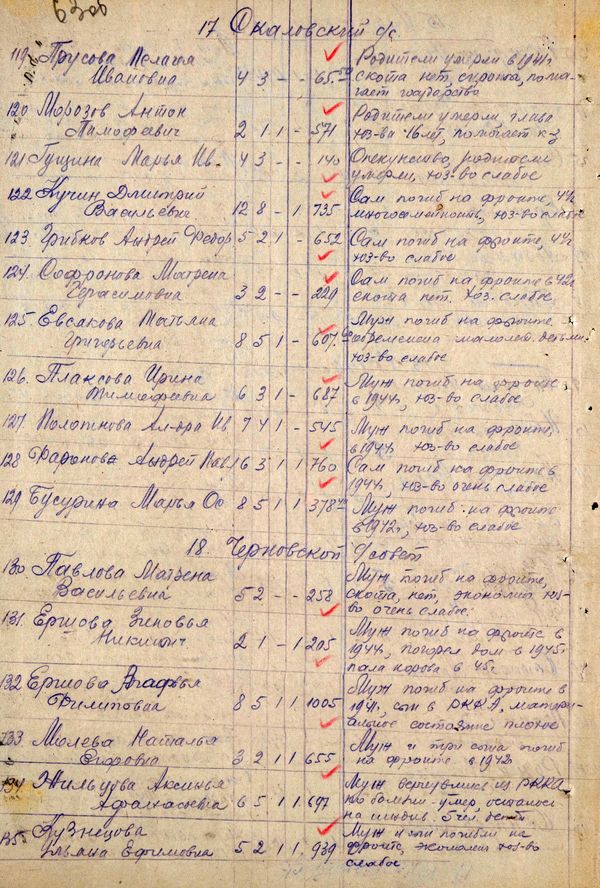 17 Окаловский с/с
119 Трусова Пелагея Родители умерли в 1941г
Ивановна 4 3 - - 65.50 скота нет, сирота, помо-
гает государство
120 Морозов Антон Родители умерли, глава
Тимофеевич 2 1 1 - 571 хоз-ва 16 лет, помогает к-з
121 Гущина Марья Ив. 4 3 - - 140 Опекунство, родители
умерли, хоз-во слабое
122 Кучин Дмитрий Сам погиб на фронте, 44г
Васильевич 12 8 - 1 735 многосемейность, хоз-во слабо
123 Грибков Андрей Федор 5 2 1 - 652 Сам погиб на фронте, 44г
хоз-во слабое
124 Софронова Матрена Сам погиб на фронте в 42г
Герасимовна 3 2 - - 229 скота нет. хоз. слабое
125 Евсакова Татьяна Муж погиб на фронте
Григорьевна 8 5 1 - 607.60 обременена малолет. детьми
хоз-во слабое
126. Плаксова Ирина Муж погиб на фронте
Тимофеевна 6 3 1 - 687 в 1944г, хоз-во слабое
127. Полотнова Ал-дра Ив. 7 4 1 - 545 Муж погиб на фронте,
в 1944г, хоз-во слабое
128 Фафонова Андрей Пав. 6 3 1 1 760 Сам погиб на фронте в
1944г, хоз-во очень слабое
129 Бусурина Марья Ос 8 5 1 1 378 Муж погиб на фронте
в 1942г, хоз-во слабое
18. Черновской с/совет
130 Павлова Матрена Муж погиб на фронте,
Васильевна 5 2 - - 258 скота, нет, экономия хоз-
во очень слабое.
131. Ершова Зиновья Муж погиб на фронте в
Никитич 2 1 - 1 205 1944г, погорел дом в 1945г
пала корова в 45г
132 Ершова Агафья Муж погиб на фронте в
Филиповна 8 5 1 1 1005 1941, сын в РККА, матери-
альное состояние плохое
133 Молева Наталья Муж и три сына погиб
3 2 1 1 655 на фронте в 1942г
134 Аксинья Муж вернувшись из РККА
Афанасьевна 6 5 1 1 697 по болезни умер, осталось
на иждив. 5 чел. детей
135 Кузнецова Муж и сын погибли на
Ульяна Ефимовна 5 2 1 1. 939 фронте, экономия хоз-во
слабое